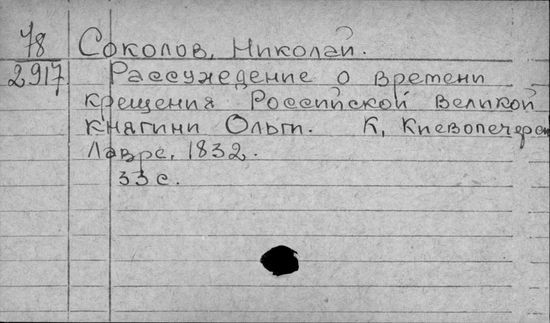 78 Соколов, Николай.
2917 Рассуждение о времени
крещения Российской великой
княгини Ольги. К, Киевопечерс
Лавре, 1832.
33 с.